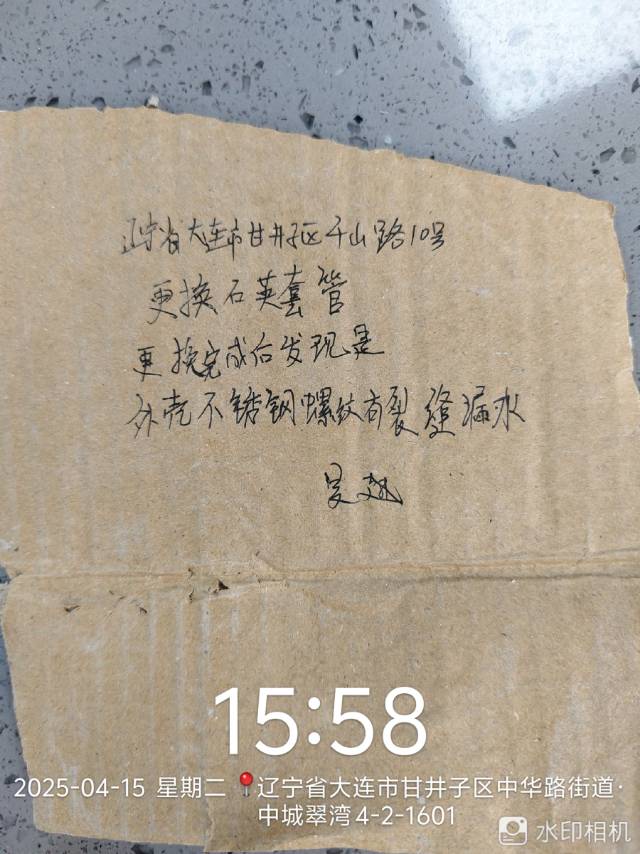 辽宁省大连市甘井子区千山路10号
更换石英套管
更换完成后发现是
外壳不锈钢螺纹有裂缝漏水
15:58
2025-04-15 星期二 辽宁省大连市甘井子区中华路街道·
中城翠湾4-2-1601
水印相机